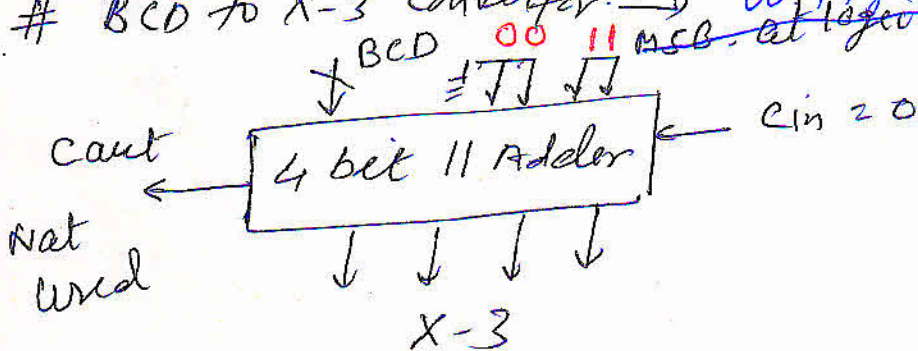 # BCD to X-3 Converter →
BCD 00 11 MSB. at logic
Cout
4 bit 11 Adder
Cin = 0
Not
Used
X-3